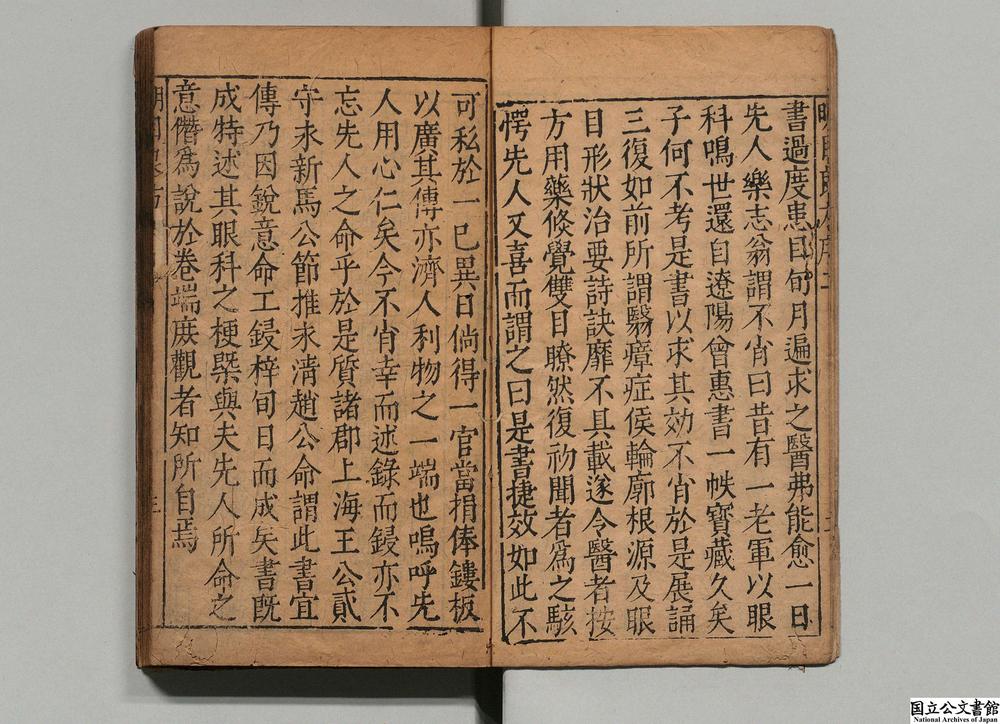 書過度患目旬月遍求之醫弗能愈一日
先人樂志翁謂不肖曰昔有一老軍以眼
科鳴世還自遼陽曾惠書一帙寶藏久矣
子何不考是書以求其効不肖於是展誦
三復如前所謂翳瘴症候輪廓根源及眼
目形狀治要詩訣靡不具載遂令醫者按
方用藥倐覺雙目瞭然復初聞者爲之駭
愕先人又喜而謂之曰是書捷效如此不
可私於一已異日倘得一官當捐俸鏤板
以廣其傳亦濟人利物之一端也嗚呼先
人用心仁矣今不肖幸而述錄而鋟亦不
忘先人之命乎於是質諸郡上海王公貳
守求新馬公節推永清趙公命謂此書宜
傳乃因銳意命工鋟梓旬日而成矣書旣
成特述其眼科之梗槩與夫先人所命之
意僭爲說於卷端庻觀者知所自焉
国立公文書館
National Archives of Japan